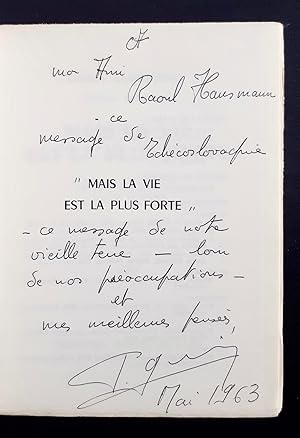 A
mon Ami
Raoul Hausmann
- ce
message de
Tchécoslovaquie
" MAIS LA VIE
EST LA PLUS FORTE "
- ce message de notre
vieille terre - loin
de nos préoccupations -
et
mes meilleures pensées,
Mai 1963